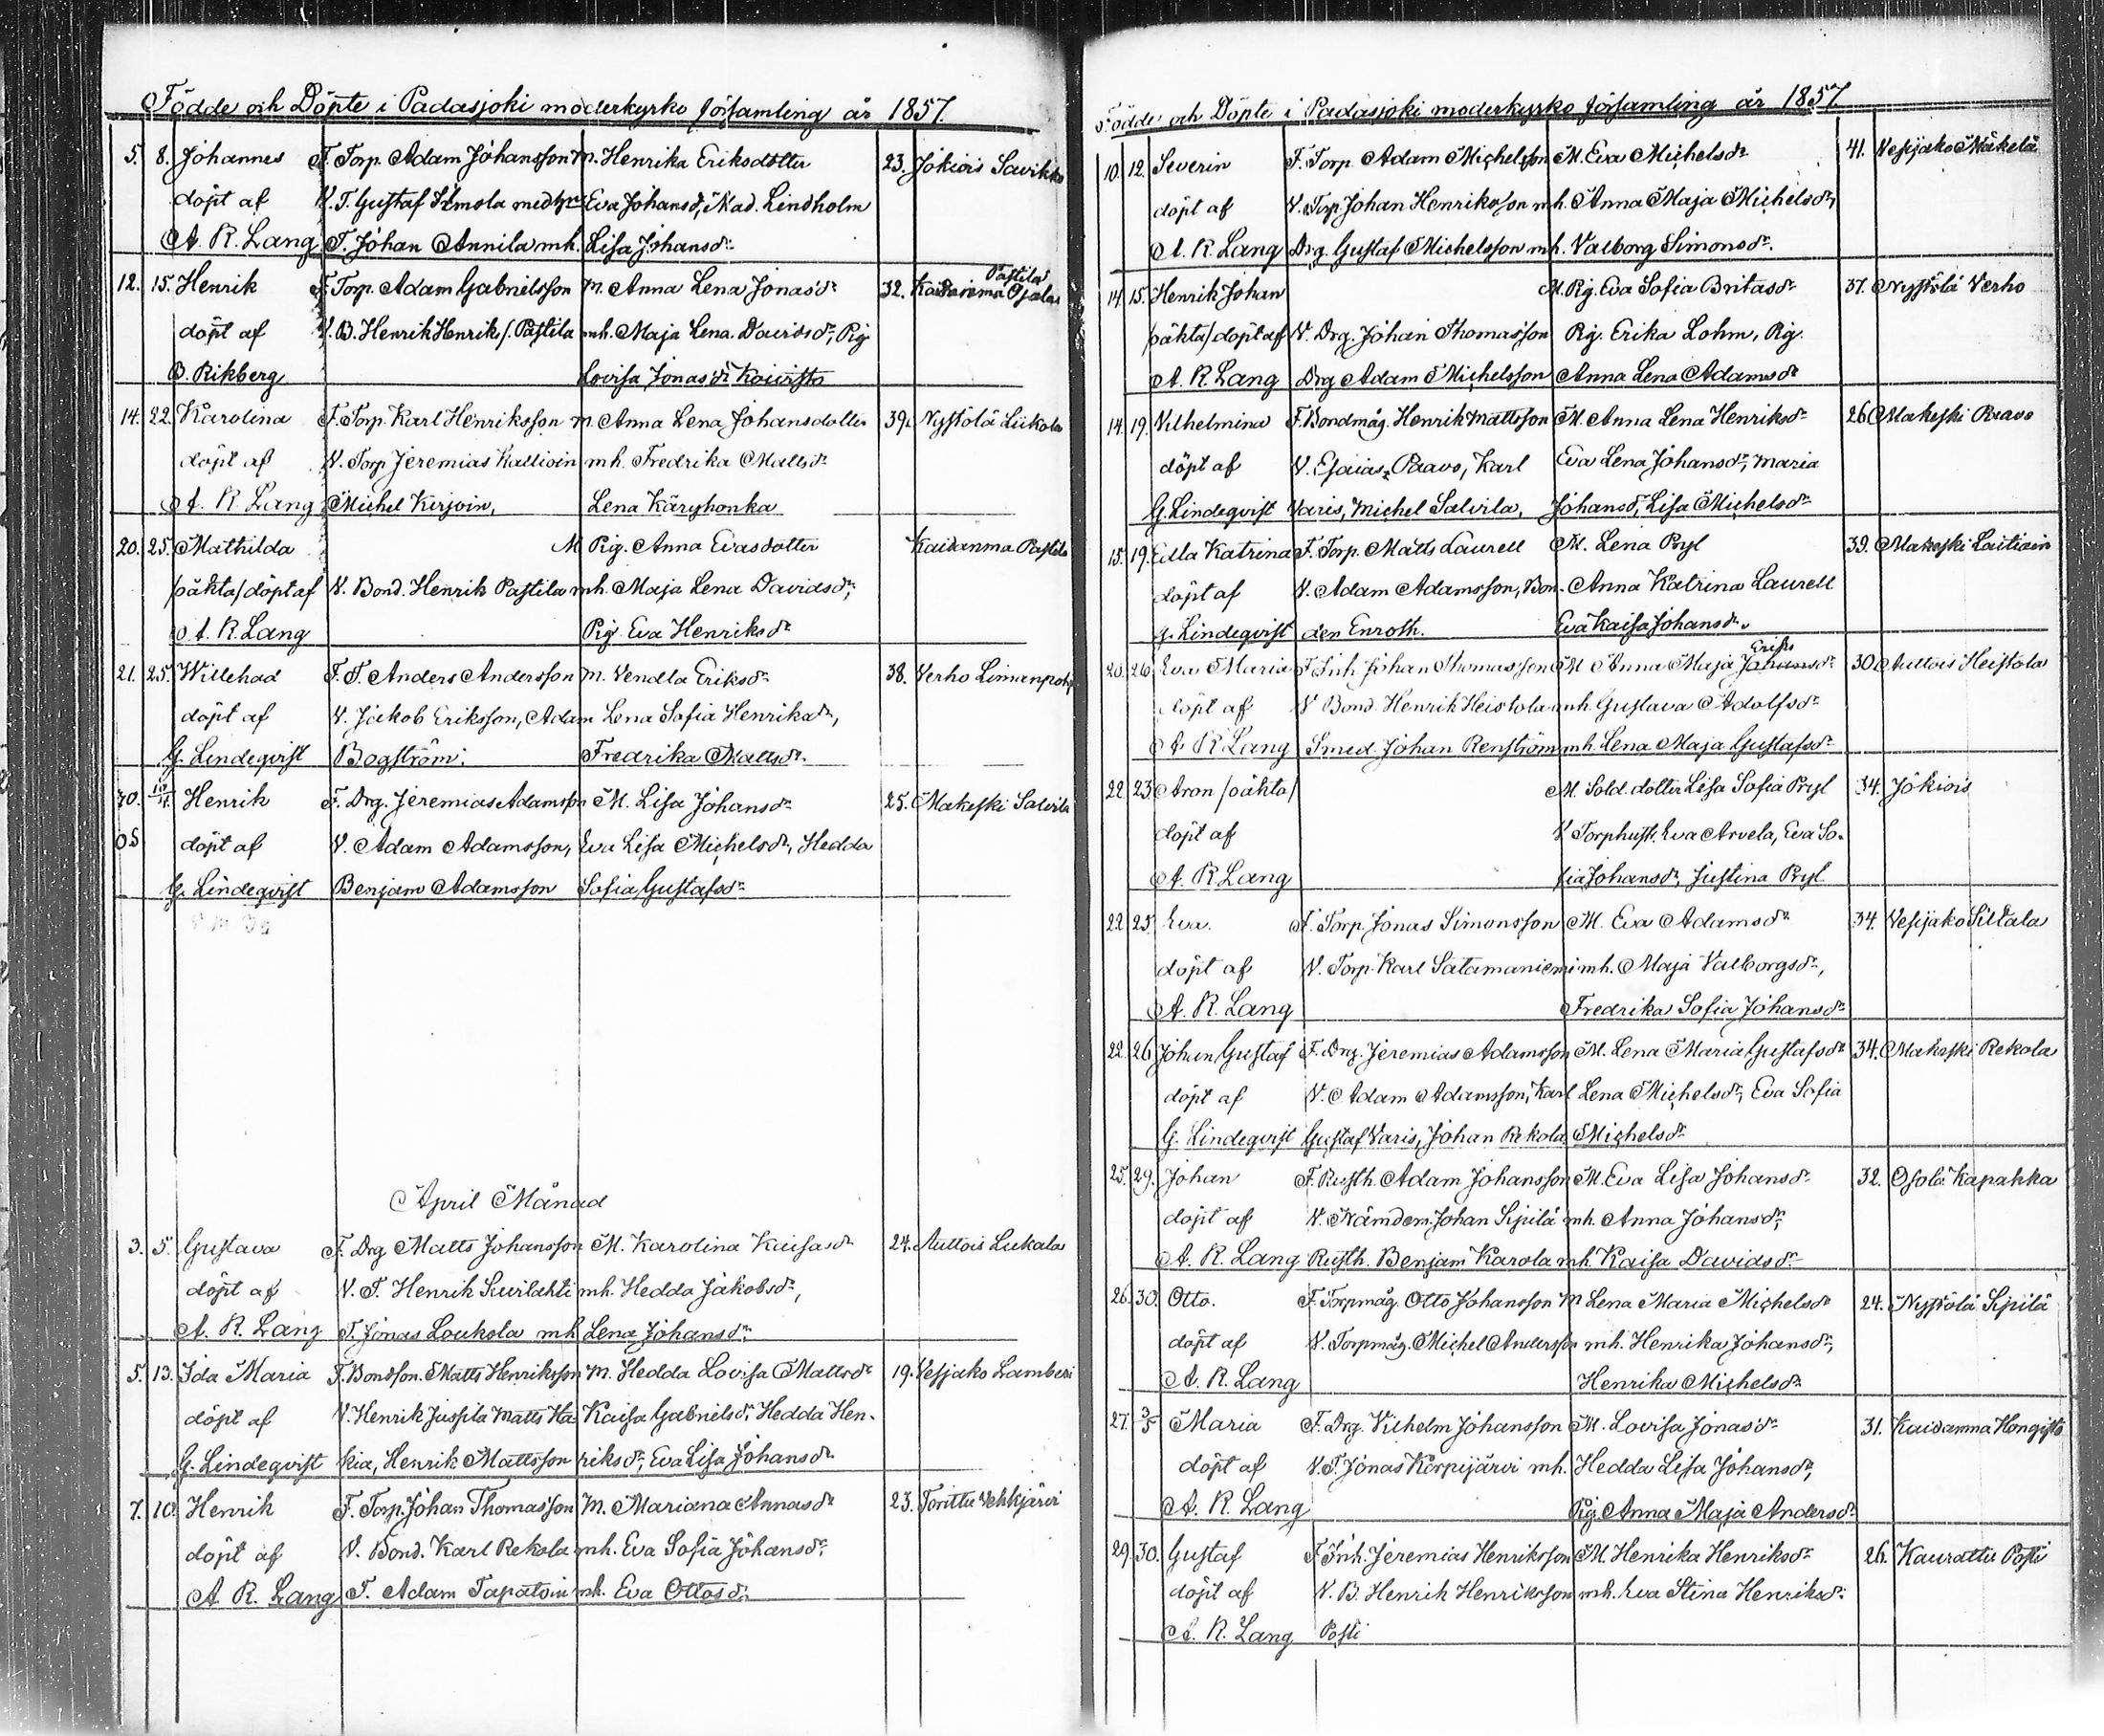 Födde och Döpte i Padasjoki moderkyrko församling år 1857.
5. 8. Johannes F. Torp. Adam Johansson M. Henrika Eriksdotter 23. Jokiois Savikko
döpt af V. T. Gustaf Simola med hu Eva Johansdr, Mad. Lindholm
A. R. Lang T. Johan Annila mh. Lisa Johansdr
12. 15. Henrik F. Torp. Adam Gabrielsson M. Anna Lena Jonasdr 32. Kaidanma Pastila Ojala
döpt af V. B. Henrik Henriks/. Pastila mh. Maja Lena Davidsdr, Pig
B. Rikberg Lovisa Jonasdr Koivisto
14. 22. Karolina F. Torp Karl Henriksson M. Anna Lena Johansdotter 39. Nystölä Liukola
döpt af V. Torp Jeremias Kallioin mh. Fredrika Mattsdr
A. R. Lang Michel Kirjoin, Lena Käryhonka
20. 25. Mathilda M Pig. Anna Evasdotter Kaidanma Pastila
/oäkta/ döpt af V. Bond. Henrik Pastila mh. Maja Lena Davidsdr,
A. R. Lang Pig Eva Henriksdr
21. 25. Willehad F. T. Anders Andersson M. Vendla Eriksdr 38. Verho Limanpohj
döpt af V. Jakob Eriksson, Adam Lena Sofia Henriksdr,
G. Lindeqvist Bogström. Fredrika Mattsdr
30. Henrik F. Drg. Jeremias Adamsson M. Lisa Johansdr 25. Makeski Salvila
döpt af V. Adam Adamsson, Eva Lisa Michelsdr, Hedda
G. Lindeqvist Benjam Adamsson Sofia Gustafsdr
April Månad
3. 5. Gustava F. Drg Matts Johansson M. Karolina Kaisasdr 24. Auttois Lukala
döpt af V. T. Henrik Kurlahti mh. Hedda Jakobsdr,
A. R. Lang T. Jonas Loukola mh Lena Johansdr
5. 13. Ida Maria F. Bondson. Matts Henriksson M. Hedda Lovisa Mattsdr 19. Vesjako Lamberi
döpt af V. Henrik Jussila Matts Ha Kaisa Gabrielsdr, Hedda Hen-
G. Lindeqvist kia, Henrik Mattsson riksdr, Eva Lisa Johansdr
7. 10. Henrik F. Torp. Johan Thomasson M. Mariana Annasdr 23. Torittu Vehkjärvi
döpt af V. Bond. Karl Rekola mh. Eva Sofia Johansdr,
A. R. Lang T. Adam Tapatoin mh. Eva Ottosdr
Födde och Döpte i Padasjoki moderkyrko församling år 1857.
10. 12. Severin F. Torp Adam Michelsson M. Eva Michelsdr 41. Vesijako Mäkelä
döpt af V. Torp Johan Henriksson mh. Anna Maja Michelsdr,
A. R. Lang Drg. Gustaf Michelsson mh. Valborg Simonsdr.
14. 15. Henrik Johan M. Pig. Eva Sofia Britasdr 37. Nystölä Verho
/oäkta/ döpt af V. Drg. Johan Thomasson Pig. Erika Lohm, Pig.
A. R. Lang Drg Adam Michelsson Anna Lena Adamsdr
14. 19. Vilhelmina F. Bondmåg. Henrik Mattsson M. Anna Lena Henriksdr 26 Makeski Paavo
döpt af V. Esaias Paavo, Karl Eva Lena Johansdr, Maria
G. Lindeqvist Varis, Michel Salvila, Johansdr, Lisa Michelsdr
15. 19. Edla Katrina F. Torp. Matts Laurell M. Lena Pryl 39. Makeski Laitiain
döpt af V. Adam Adamsson, Bon- Anna Katrina Laurell
G. Lindeqvist den Enroth. Eva Kaisa Johansdr.
20. 26. Eva Maria F. Inh Johan Thomasson M Anna Maja Johansdr Eriks 30 Auttois Heistola
döpt af V Bond. Henrik Heistola mh. Gustava Adolfsdr
A. R. Lang Smed. Johan Renström mh. Lena Maja Gustafsdr
22 23 Aron /oäkta/ M. Sold. dotter Lisa Sofia Pryl 34. Jokiois
döpt af V Torphust. Eva Arvela, Eva So-
A. R. Lang fia Johansdr, Justina Pryl
22 25 Eva. F. Torp. Jonas Simonsson M. Eva Adamsdr 34. Vesijako Siltala
döpt af V. Torp. Karl Satamaniemi mh. Maja Valborgsdr,
A. R. Lang Fredrika Sofia Johansdr
22. 26 Johan Gustaf F. Drg. Jeremias Adamsson M. Lena Maria Gustafsdr 34. Makeski Rekola
döpt af V. Adam Adamsson, Karl Lena Michelsdr, Eva Sofia
G. Lindeqvist Gustaf Varis, Johan Rekola Michelsdr
25. 29. Johan F. Rusth. Adam Johansson M. Eva Lisa Johansdr 32. Osola Kapakka
döpt af V. Nämdem. Johan Sipilä mh. Anna Johansdr,
A. R. Lang Rusth. Benjam Karola mh. Kaisa Davidsdr
26. 30. Otto. F. Torpmåg. Otto Johansson M Lena Maria Michelsdr 24. Nystölä Sipilä
döpt af V. Torpmåg. Michel Andersson mh. Henrika Johansdr,
A. R. Lang Henrika Michelsdr
27. 3/5 Maria F. Drg. Vilhelm Johansson M. Lovisa Jonasdr 31. Kaidanma Hongisto
döpt af V. T. Jonas Korpijärvi mh. Hedda Lisa Johansdr,
A. R. Lang Pig. Anna Maja Andersdr
29. 30. Gustaf F. Inh. Jeremias Henriksson M. Henrika Henriksdr 26. Kaurattu Posti
döpt af V. B. Henrik Henriksson mh. Eva Stina Henriksdr
A. R. Lang Posti